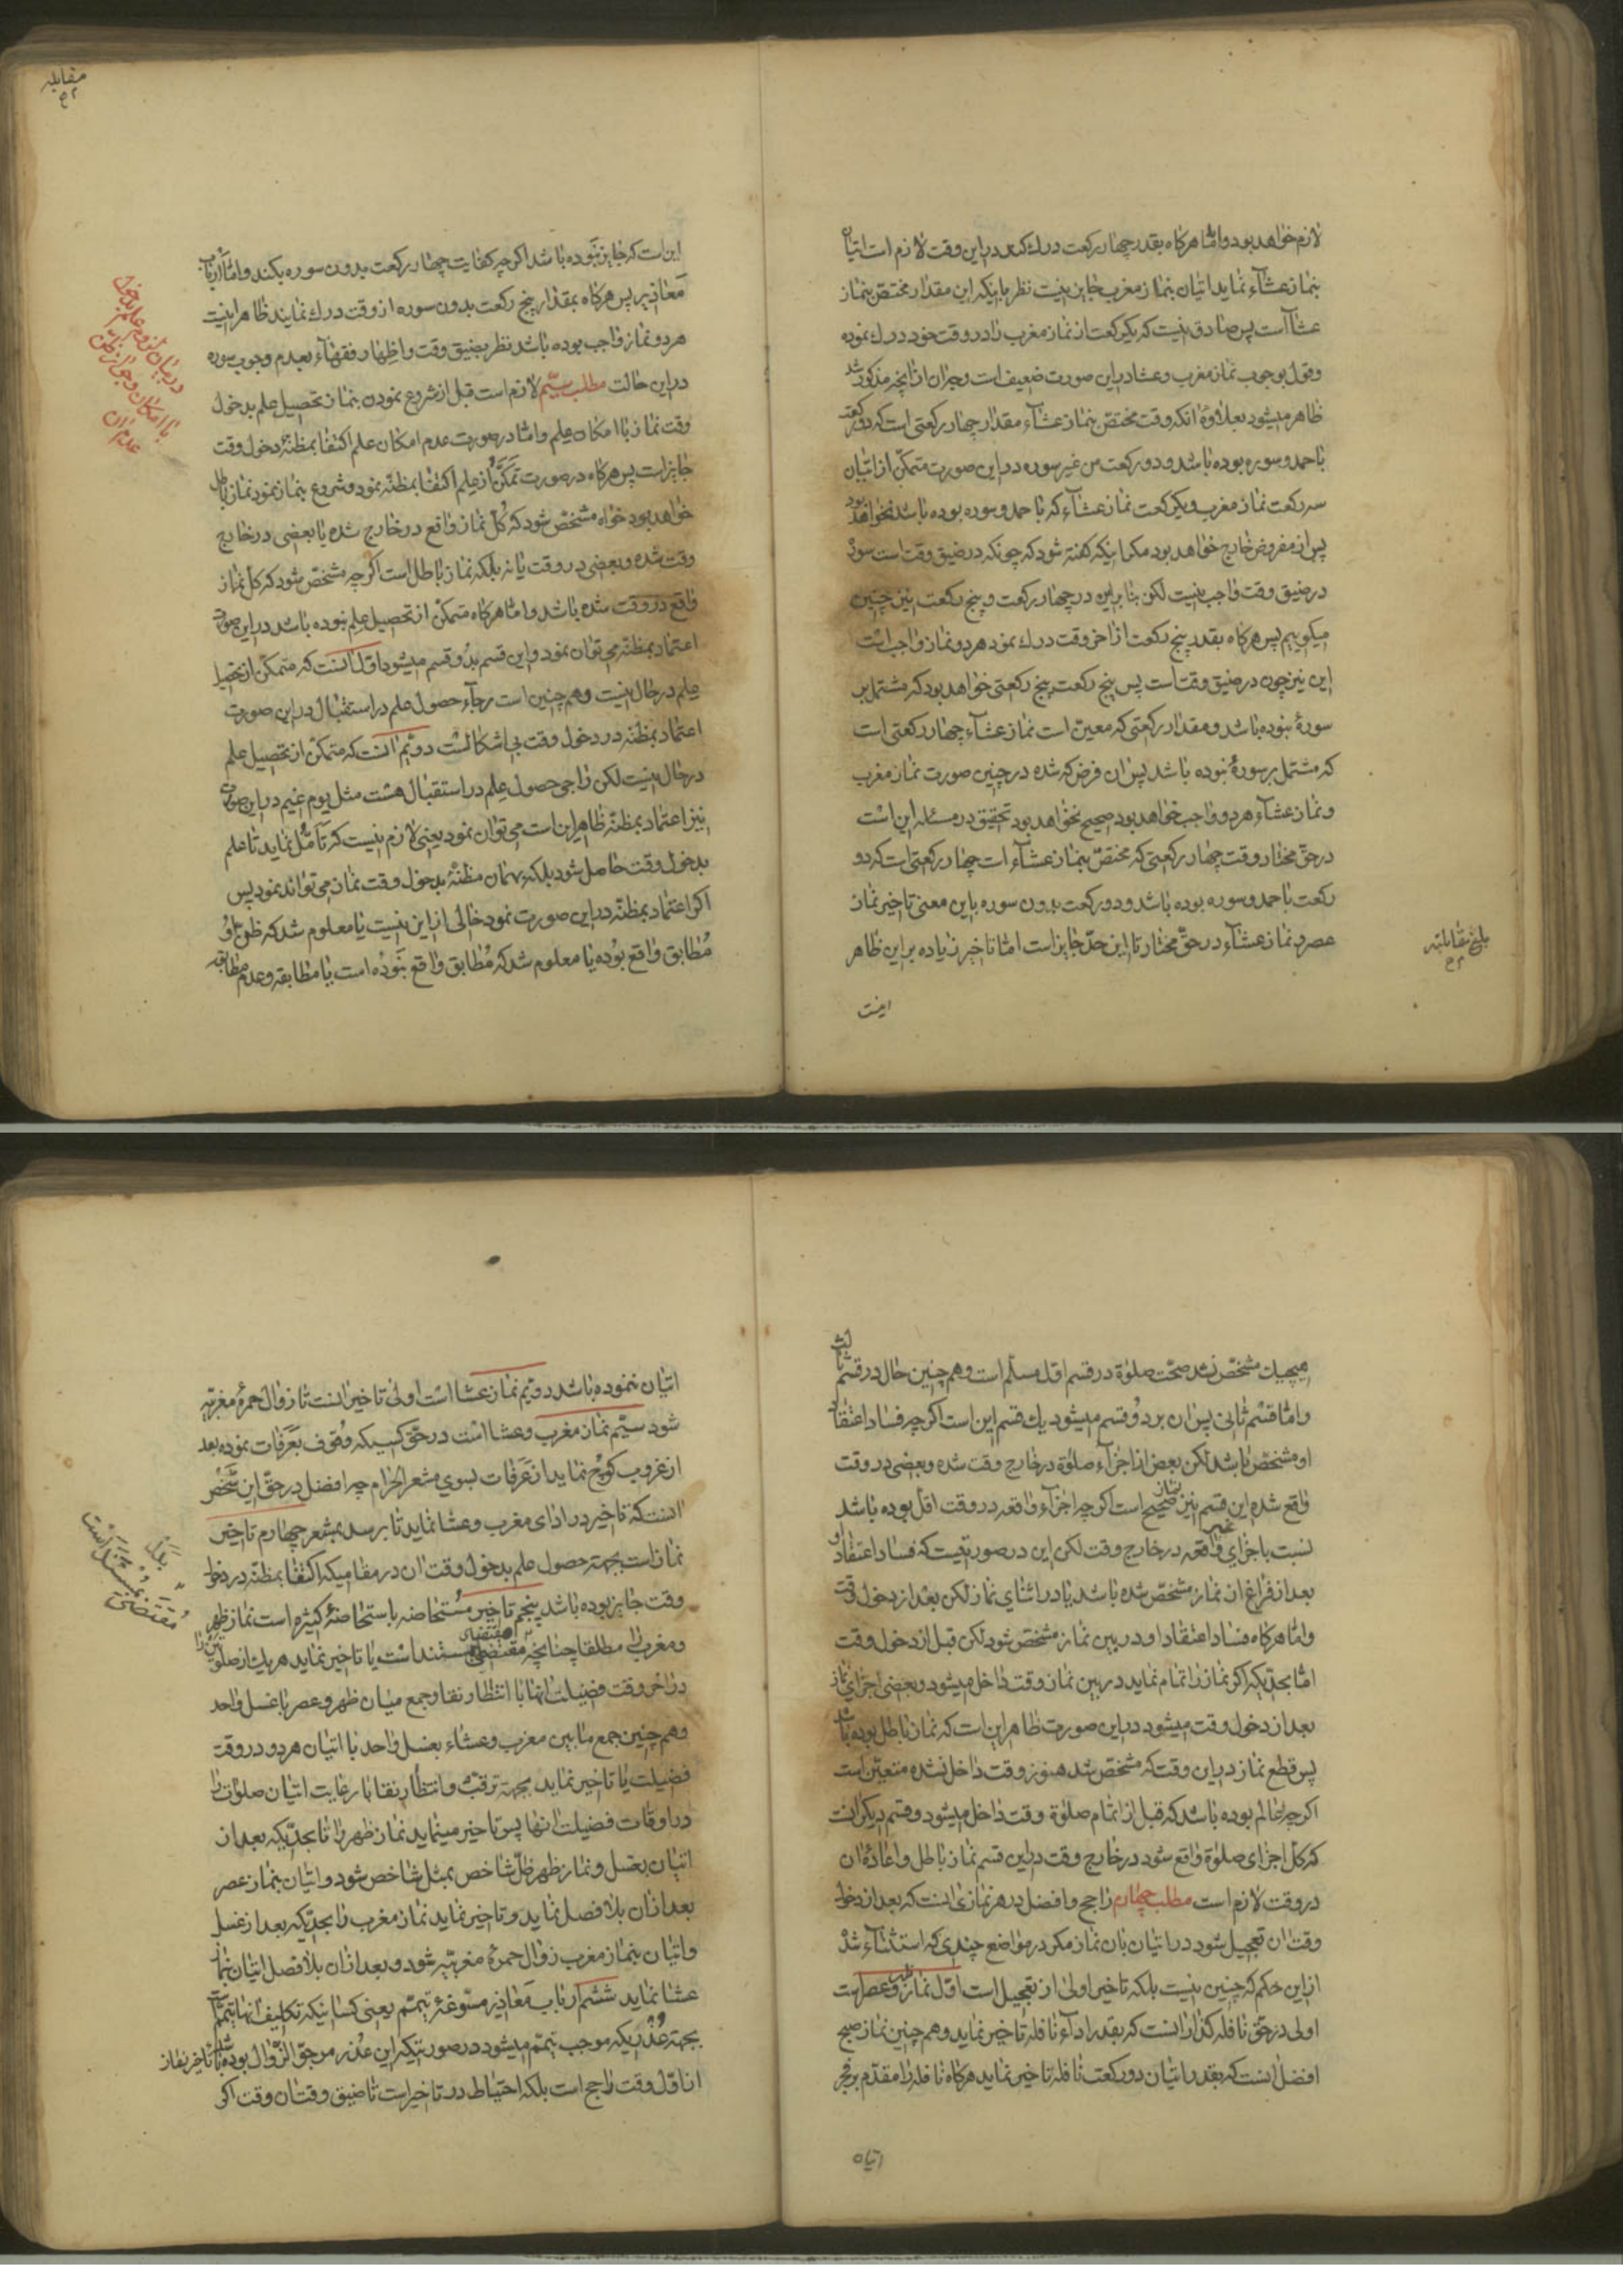 لازم خواهد بود و امّا هرکاه بقدر چهار رکعت درك کند در این وقت لازم است اتیان
بنماز عشآء نماید اتیان بنماز مغرب جایز نیست نظر باینکه این مقدار مختصّ بنماز
عشآ است پس صادق نیست که یکرکعت از نماز مغرب را در وقت خود درك نموده
وقول بوجوب نماز مغرب وعشا در این صورت ضعیف است وجه ان از انچه مذکور شد
ظاهر میشود بعلاوهٔ انکه وقت مختصّ بنماز عشآء مقدار چهار رکعتی است که دو رکعت
با حمد وسوره بوده باشد ودو رکعت من غیر سوره در این صورت متمکّن از اتیان
سه رکعت نماز مغرب ویکرکعت نماز عشآء که با حمد وسوره بوده باشد نخواهد بود
پس از مفروض خارج خواهد بود مکر اینکه کفته شود که چونکه در ضیق وقت است سوره
در ضیق وقت واجب نیست لکن بنا براین در چهار رکعت و پنج رکعت نیز چنین
میکوییم پس هرکاه بقدر پنج رکعت از اخر وقت درك نمود هر دو نماز واجب است
این نیز چون در ضیق وقت است پس پنج رکعت پنج رکعتی خواهد بود که مشتمل بر
سورهٔ نبوده باشد ومقدار رکعتی که معین است نماز عشآء چهار رکعتی است
که مشتمل بر سورهٔ نبوده باشد پس ان فرض که شده در چنین صورت نماز مغرب
ونماز عشآء هر دو واجب خواهد بود صحیح نخواهد بود تحقیق در مسئله این است
در حقّ مختار وقت چهار رکعتی که مختصّ بنماز عشآء است چهار رکعتی است که دو
رکعت با حمد وسوره بوده باشد ودو رکعت بدون سوره باین معنی تاخیر نماز
عصر و نماز عشآء در حقّ مختار تا این حدّ جایز است امّا تاخیر زیاده بر این ظاهر
بلغ مقابلته
اینست
مقابله
این است که جایز نبوده باشد اکرچه کفایت چهار رکعت بدون سوره بکند وامّا ارباب
معاذیر پس هرکاه بمقدار پنج رکعت بدون سوره از وقت درك نمایند ظاهر اینست
هر دو نماز واجب بوده باشد نظر بضیق وقت واظهار فقهآء بعدم وجوب سوره
در این حالت مطلب سیّم لازم است قبل از شروع نمودن بنماز تحصیل علم بدخول
وقت نماز با امکان علم وامّا در صورت عدم امکان علم اکتفا بمظنّهٔ دخول وقت
جایز است پس هرکاه در صورت تمکّن از علم اکتفا بمظنّه نمود و شروع بنماز نمود نماز باطل
خواهد بود خواه مشخّص شود که کلّ نماز واقع در خارج شده یا بعضی در خارج
وقت شده وبعضی در وقت یا نه بلکه نماز باطل است اکرچه مشخّص شود که کلّ نماز
واقع در وقت شده باشد وامّا هرکاه متمکّن از تحصیل علم نبوده باشد در این صورت
اعتماد بمظنّه می توان نمود واین قسم بدو قسم میشود اوّل انست که متمکّن از تحصیل
علم در حال نیست وهم چنین است رجآء حصول علم در استقبال در این صورت
اعتماد بمظنّه در دخول وقت بی اشکال است دویّم انست که متمکّن از تحصیل علم
در حال نیست لکن راجی حصول علم در استقبال هست مثل یوم غیم در این صورت
نیز اعتماد بمظنّه ظاهر این است می توان نمود یعنی لازم نیست که تأمّل نماید تا علم
بدخول وقت حاصل شود بلکه بهمان مظنّهٔ بدخول وقت نماز می تواند نمود پس
اکر اعتماد بمظنّه در این صورت نمود خالی از این نیست یا معلوم شد که ظنّ او
مطابق واقع بوده یا معلوم شد که مطابق واقع نبوده است یا مطابقه وعدم مطابقه
در بیان لزوم علم بدخول
با امکان وجواز ظن
عدم ان
هیچیك مشخّص نشد صحّت صلوة در قسم اوّل مسلّم است وهم چنین حال در قسم ثالث
وامّا قسم ثانی پس ان بر دو قسم میشود یك قسم این است اکرچه فساد اعتقاد
او مشخّص باشد لکن بعض از اجزآء صلوة در خارج وقت شده وبعضی در وقت
واقع شده این قسم نیز نماز صحیح است اکرچه اجزآء واقعه در وقت اقلّ بوده باشد
نسبت باجزای غیر واقعه در خارج وقت لکن این در صورتیست که فساد اعتقاد او
بعد از فراغ از نماز مشخّص شده باشد یا در اثنای نماز لکن بعد از دخول وقت
وامّا هرکاه فساد اعتقاد او در بین نماز مشخّص شود لکن قبل از دخول وقت
امّا بحدّیکه اکر نماز را تمام نماید در بین نماز وقت داخل میشود وبعضی اجزای نماز
بعد از دخول وقت میشود در این صورت ظاهر این است که نماز باطل بوده باشد
پس قطع نماز در این وقت که مشخّص شد هنوز وقت داخل نشده متعیّن است
اکرچه عالم بوده باشد که قبل از اتمام صلوة وقت داخل میشود وقسم دیکر انست
که کلّ اجزای صلوة واقع شود در خارج وقت در این قسم نماز باطل واعادهٔ ان
در وقت لازم است مطلب چهارم راجح وافضل در هر نمازی انست که بعد از دخول
وقت ان تعجیل شود در اتیان بان نماز مکر در مواضع چندی که استثنآء شده
از این حکم که چنین نیست بلکه تاخیر اولی از تعجیل است اوّل نماز ظهر وعصر است
اولی در حقّ نافله کذار انست که بقدر ادآء نافله تاخیر نماید وهم چنین نماز صبح
افضل انست که بقدر اتیان دو رکعت نافله تاخیر نماید هرکاه نافله را مقدّم بر فجر
اتیان
اتیان ننموده باشد دویّم نماز عشا است اولی تاخیر انست تا زوال حمرهٔ مغربیّه
شود سیّم نماز مغرب وعشا است در حقّ کسیکه وقوف بعرفات نموده بعد
از غروب کوچ نماید از عرفات بسوی مشعر الحرام چه افضل در حقّ این شخص
انست که تاخیر در ادای مغرب وعشا نماید تا برسد بمشعر چهارم تاخیر
نماز است بجهتِ حصول علم بدخول وقت ان در مقامیکه اکتفا بمظنّه در دخول
وقت جایز بوده باشد پنجم تاخیر مستحاضه باستحاضهٔ کثیره است نماز ظهر
ومغرب را مطلقا چنانچه مقتضای مستند است یا تاخیر نماید هر یك از صلوتین را
در اخر وقت فضیلت انها با انتظار نقا وجمع میان ظهر وعصر با غسل واحد
وهم چنین جمع ما بین مغرب وعشاء بغسل واحد با اتیان هر دو در وقت
فضیلت یا تاخیر نماید بجهتِ ترقّب وانتظار نقا با رعایت اتیان صلوات را
در اوقات فضیلت انها پس تاخیر مینماید نماز ظهر را تا بحدّیکه بعد از
اتیان بغسل ونماز ظهر ظلّ شاخص بمثل شاخص شود واتیان بنماز عصر
بعد از ان بلا فصل نماید وتاخیر نماید نماز مغرب را بحدّیکه بعد از غسل
واتیان بنماز مغرب زوال حمرهٔ مغربیّه شود وبعد از ان بلا فصل اتیان بنماز
عشا نماید ششم ارباب معاذیر مسوّغهٔ تیمّم یعنی کسانیکه تکلیف انها تیمّم است
بجهتِ عذریکه موجب تیمّم میشود در صورتیکه این عذر مرجوّ الزّوال بوده باشد تاخیر نماز
از اوّل وقت راجح است بلکه احتیاط در تاخیر است تا ضیق وقت ان وقت اکر